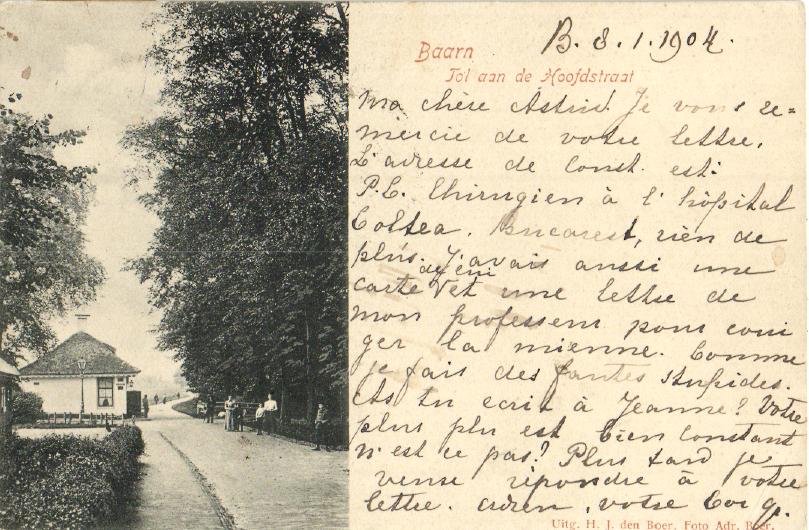 B. 8.1.1904.
Baarn
Tol aan de Hoofdstraat
Ma chère Astrid! Je vous re=
mercie de votre lettre.
L'adresse de Const. est:
P.C. Chirurgien à l'hôpital
Coltea. Bucarest, rien de
plus. J'avais aussi une
carte et une lettre de
mon professeur pour corri
ger la mienne. Comme
je fais des fautes stupides.
As tu ecrit à Jeanne? Votre
plus est bien Constant
n'est ce pas? Plus tard je
répondre à votre
lettre. votre
Uitg. H. J. den Boer. Foto Adr. Boer.